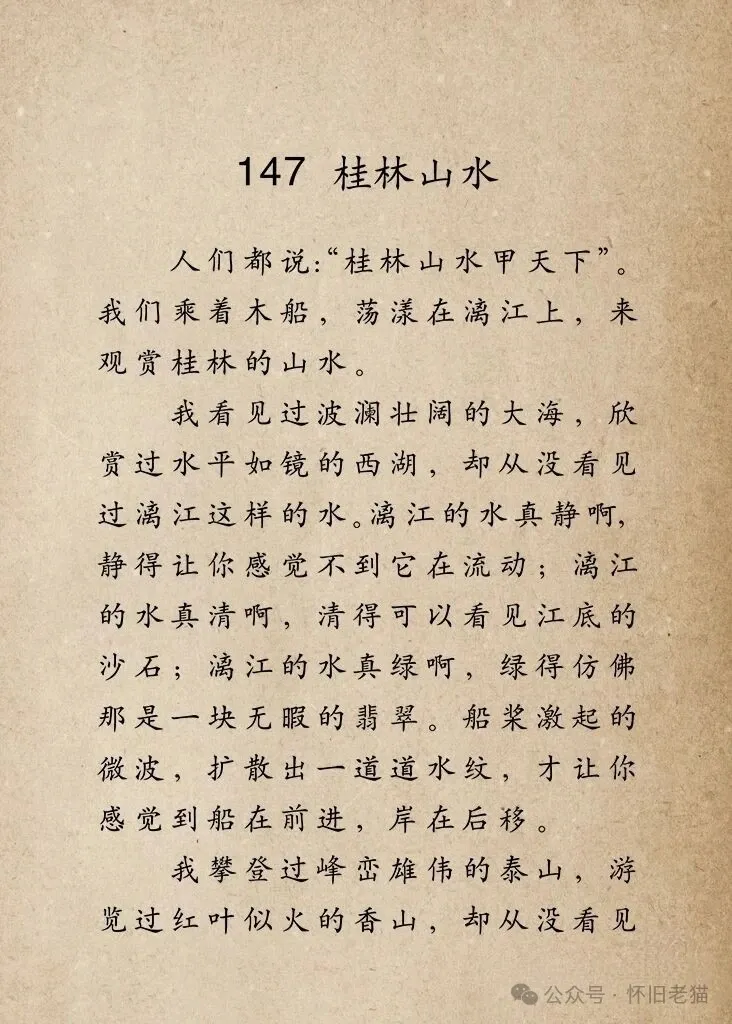 147 桂林山水
人们都说:“桂林山水甲天下”。
我们乘着木船，荡漾在漓江上，来
观赏桂林的山水。
我看见过波澜壮阔的大海，欣
赏过水平如镜的西湖，却从没看见
过漓江这样的水。漓江的水真静啊，
静得让你感觉不到它在流动；漓江
的水真清啊，清得可以看见江底的
沙石；漓江的水真绿啊，绿得仿佛
那是一块无暇的翡翠。船桨激起的
微波，扩散出一道道水纹，才让你
感觉到船在前进，岸在后移。
我攀登过峰峦雄伟的泰山，游
览过红叶似火的香山，却从没看见
公众号·怀旧老猫